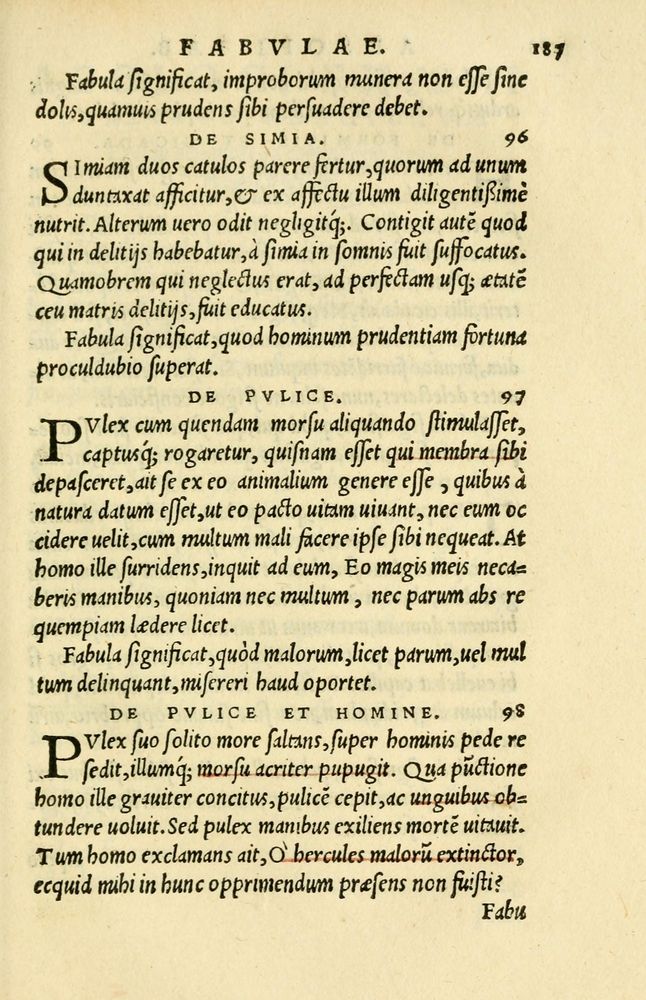 FABVLAE. 187
Fabula ſignificat, improborum munera non eſſe ſine
dolis,quamuis prudens ſibi perſuadere debet.
DE SIMIA. 96
SImiam duos catulos parere fertur,quorum ad unum
duntaxat afficitur,& ex affectu illum diligentißimè
nutrit. Alterum uero odit negligitq́;. Contigit autẽ quod
qui in delitijs habebatur,à ſimia in ſomnis fuit ſuffocatus.
Quamobrem qui neglectus erat, ad perfectam uſq; ætatẽ
ceu matris delitijs,fuit educatus.
Fabula ſignificat,quod hominum prudentiam fortuna
proculdubio ſuperat.
DE PVLICE. 97
PVlex cum quendam morſu aliquando ſtimulaſſet,
captusq́; rogaretur, quiſnam eſſet qui membra ſibi
depaſceret,ait ſe ex eo animalium genere eſſe , quibus à
natura datum eſſet,ut eo pacto uitam uiuant, nec eum oc
cidere uelit,cum multum mali facere ipſe ſibi nequeat. At
homo ille ſurridens,inquit ad eum, Eo magis meis neca=
beris manibus, quoniam nec multum , nec parum abs re
quempiam lædere licet.
Fabula ſignificat,quòd malorum,licet parum,uel mul
tum delinquant,miſereri haud oportet.
DE PVLICE ET HOMINE. 98
PVlex ſuo ſolito more ſaltans,ſuper hominis pede re
ſedit,illumq́; morſu acriter pupugit. Qua pũctione
homo ille grauiter concitus,pulicẽ cepit,ac unguibus ob=
tundere uoluit. Sed pulex manibus exiliens mortẽ uitauit.
Tum homo exclamans ait,Ò hercules malorũ extinctor,
ecquid mihi in hunc opprimendum præſens non fuiſti?
Fabu